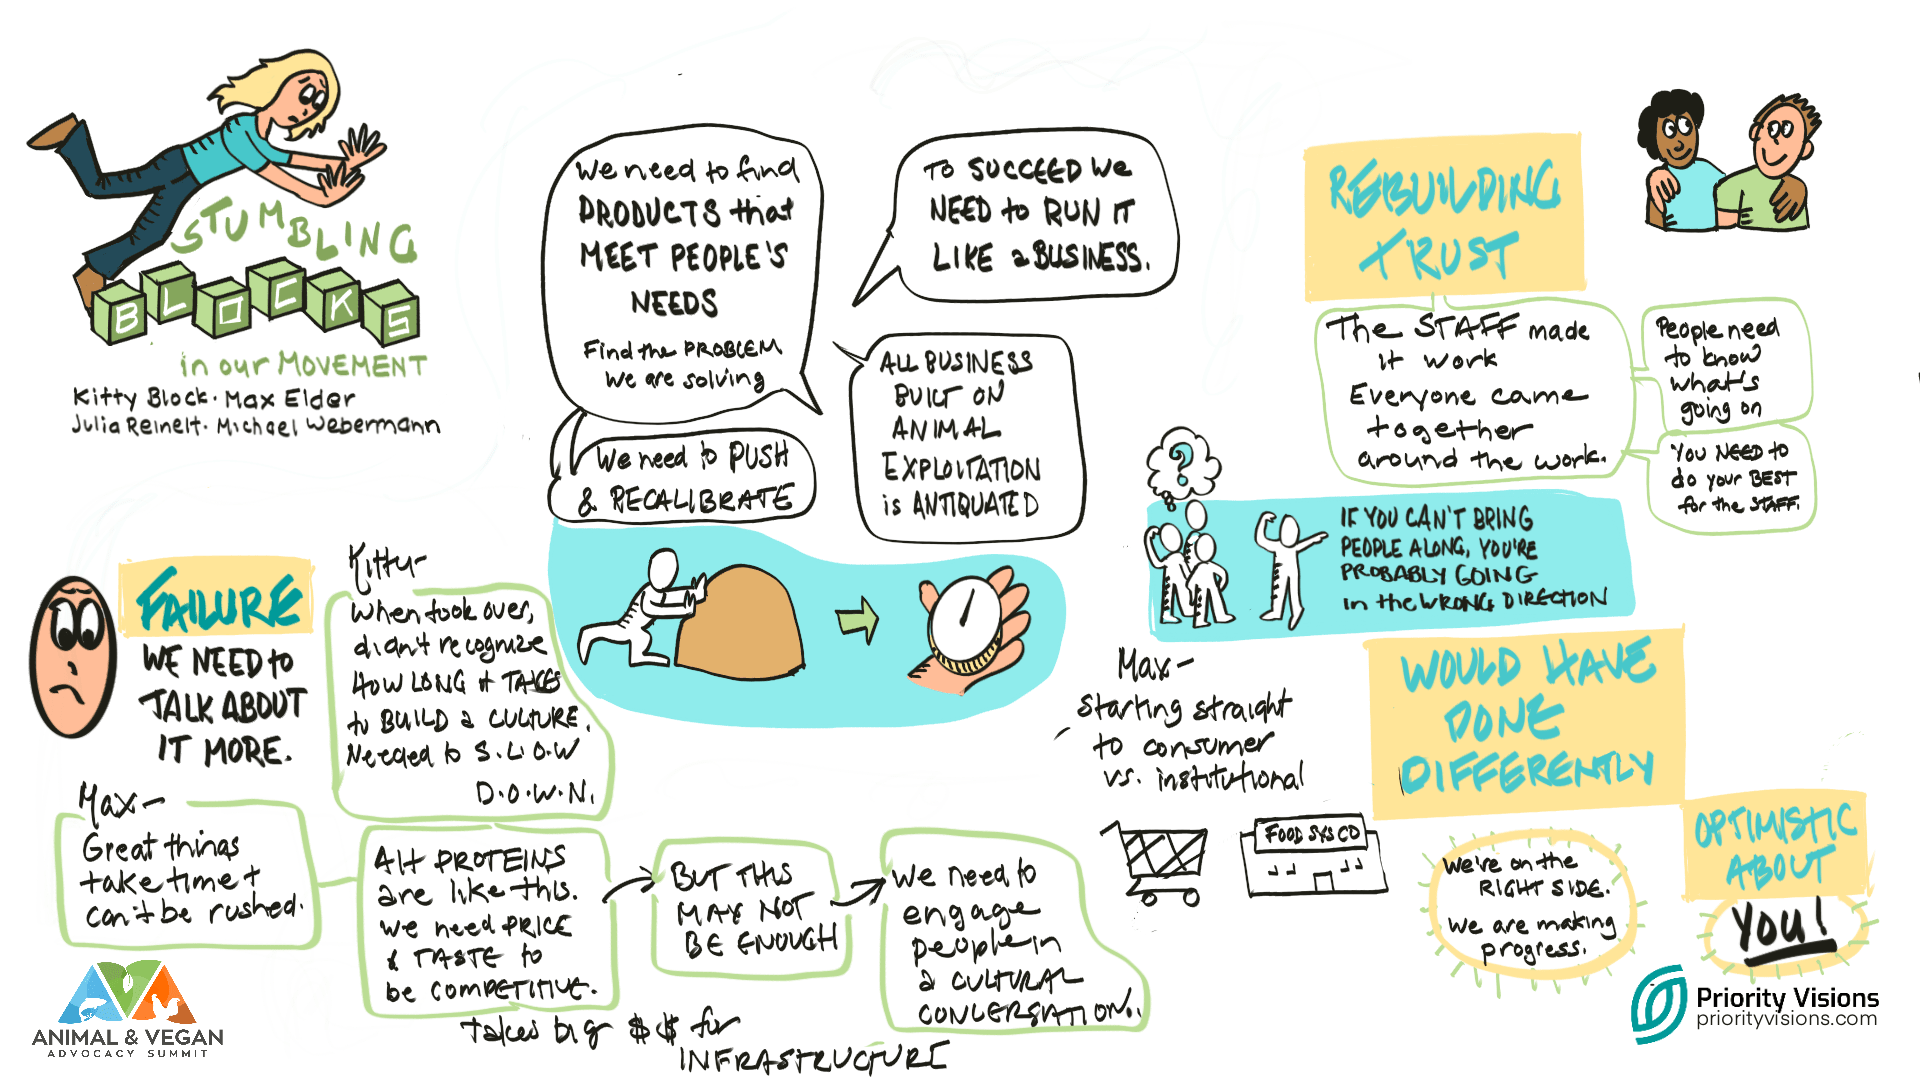 STUMBLING
BLOCKS
in our MOVEMENT
Kitty Block · Max Elder
Julia Reinelt · Michael Webermann
FAILURE
WE NEED to
TALK ABOUT
IT MORE.
Kitty-
When took over,
didn't recognize
HOW LONG it TAKES
to BUILD a CULTURE.
Needed to S.L.O.W
D.O.W.N.
Max-
Great things
take time +
can't be rushed.
Alt PROTEINS
are like this.
We need PRICE
& TASTE to
be COMPETITIVE.
Takes big $$ for
INFRASTRUCTURE
BUT THIS
MAY NOT
BE ENOUGH
We need to
engage
people in
a CULTURAL
CONVERSATION.
We need to find
PRODUCTS that
MEET PEOPLE'S
NEEDS
Find the PROBLEM
We are solving
We need to PUSH
& RECALIBRATE
To SUCCEED We
NEED to RUN IT
LIKE a BUSINESS.
ALL BUSINESS
BUILT ON
ANIMAL
EXPLOITATION
is ANTIQUATED
REBUILDING
TRUST
The STAFF made
it work
Everyone came
together
around the work.
People need
to know
what's
going on
YOU NEED to
do your BEST
for the STAFF.
?
IF YOU CAN'T BRING
PEOPLE ALONG, YOU'RE
PROBABLY GOING
in the WRONG DIRECTION
WOULD HAVE
DONE
DIFFERENTLY
Max-
Starting straight
to consumer
vs. institutional
FOOD SYS CO
OPTIMISTIC
ABOUT
We're on the
RIGHT SIDE.
We are making
progress.
You!
ANIMAL & VEGAN
ADVOCACY SUMMIT
Priority Visions
priorityvisions.com